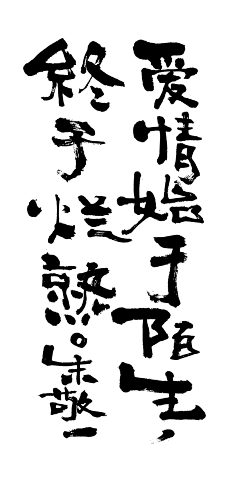 爱情始于陌生,
终于烂熟。朱敬一